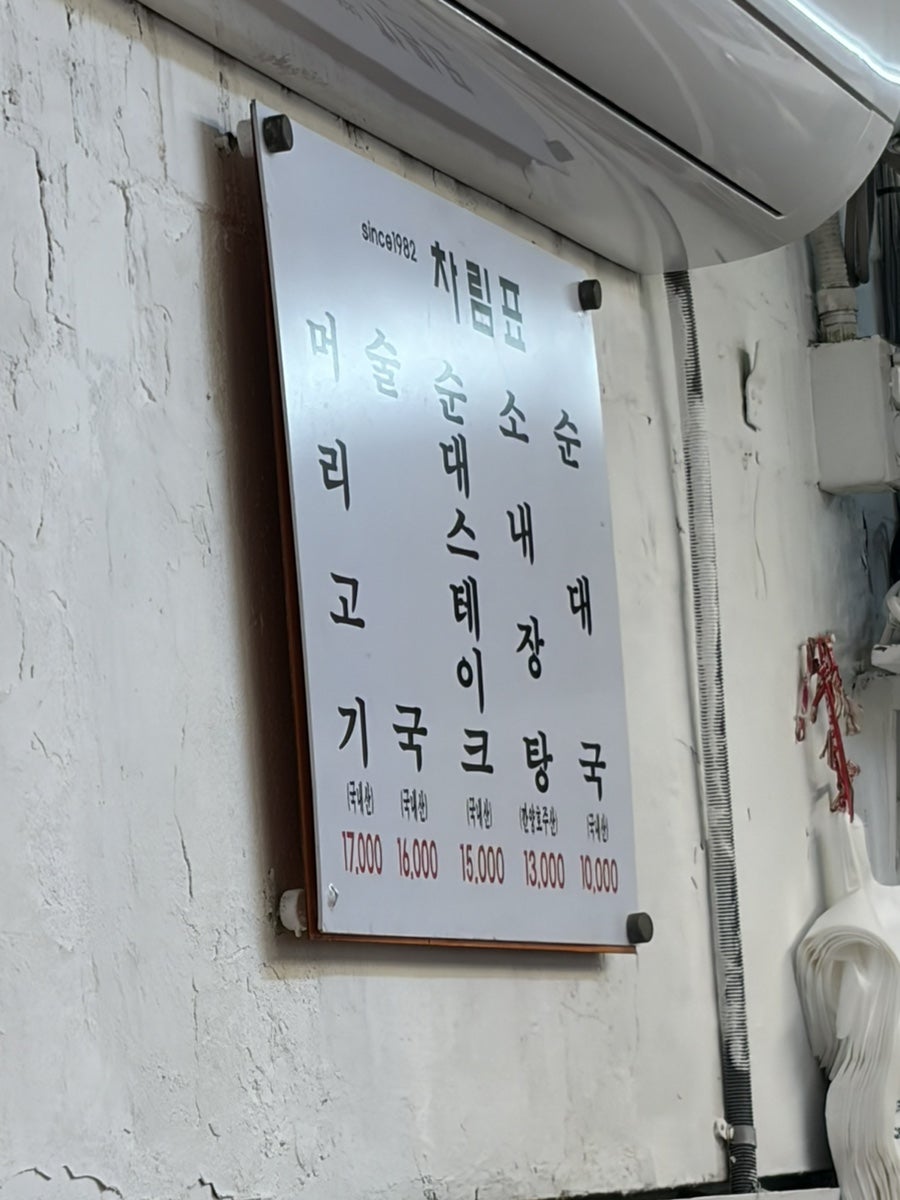 since1982
차림표
머리고기
(국내산)
17,000
술국
(국내산)
16,000
순대스테이크
(국내산)
15,000
소내장탕
13,000
순대국
(국내산)
10,000